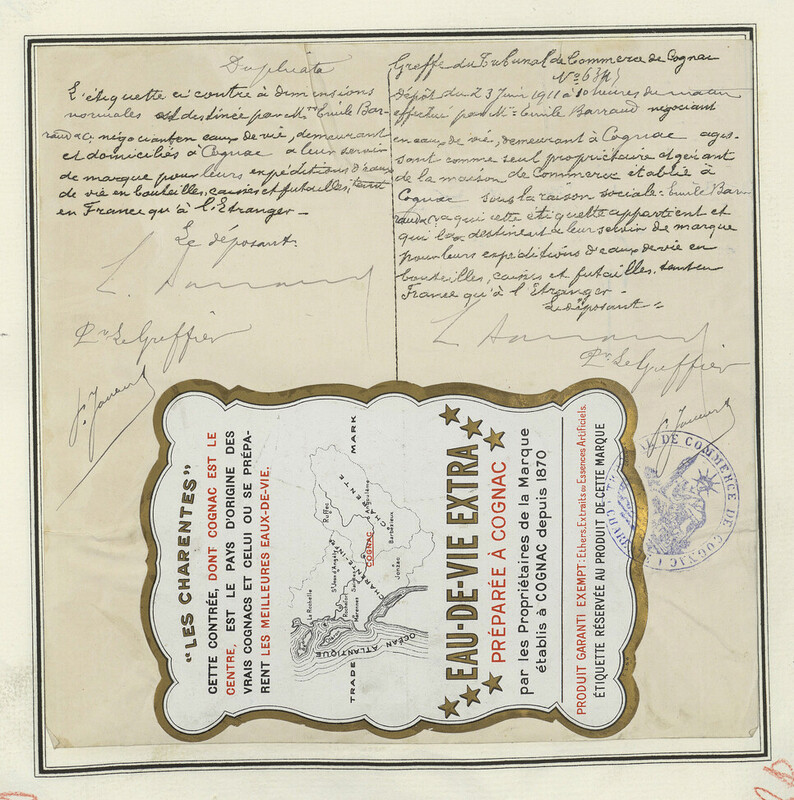 Duplicata
L'étiquette ci contre à dimensions
normales est destinée par MM. Emile Bar-
raud & Co. négociants en eaux de vie, demeurant
et domiciliés à Cognac à leur servir
de marque pour leurs expéditions d'eaux
de vie en bouteilles, caisses et futailles, tant
en France qu'à l'Etranger _
Le déposant.
E. Barraud
Pr. Le Greffier
Greffe du Tribunal de Commerce de Cognac
Dépôt du 23 Juin 1911 à 10 heures du matin
effectué par Mr. Emile Barraud négociant
en eaux de vie, demeurant à Cognac agis-
sant comme seul propriétaire et gérant
de la maison de Commerce établie à
Cognac sous la raison sociale: Emile Bar-
raud & Co à qui cette étiquette appartient et
qui la destinent à leur servir de marque
pour leurs expéditions d'eaux de vie en
bouteilles, caisses et futailles, tant en
France qu'à l'Etranger _
Le déposant =
E. Barraud
Pr. Le Greffier
"LES CHARENTES"
CETTE CONTRÉE, DONT COGNAC EST LE
CENTRE, EST LE PAYS D'ORIGINE DES
VRAIS COGNACS ET CELUI OU SE PRÉPA-
RENT LES MEILLEURES EAUX-DE-VIE.
TRADE MARK
OCÉAN ATLANTIQUE
La Rochelle
Rochefort
Marennes
St Jean d'Angély
Saintes
Ruffec
CHARENTE INFRE
CHARENTE
COGNAC
Angoulême
Barbezieux
Jonzac
EAU-DE-VIE EXTRA
PRÉPARÉE À COGNAC
par les Propriétaires de la Marque
établis à COGNAC depuis 1870
PRODUIT GARANTI EXEMPT: Ethers, Extraits ou Essences Artificiels.
ÉTIQUETTE RÉSERVÉE AU PRODUIT DE CETTE MARQUE
TRIBUNAL DE COMMERCE DE COGNAC